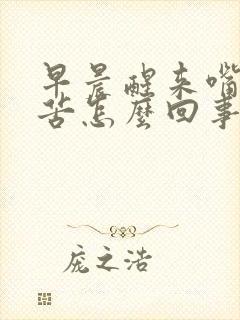 早晨醒来嘴
苦怎麽回事
庞之浩